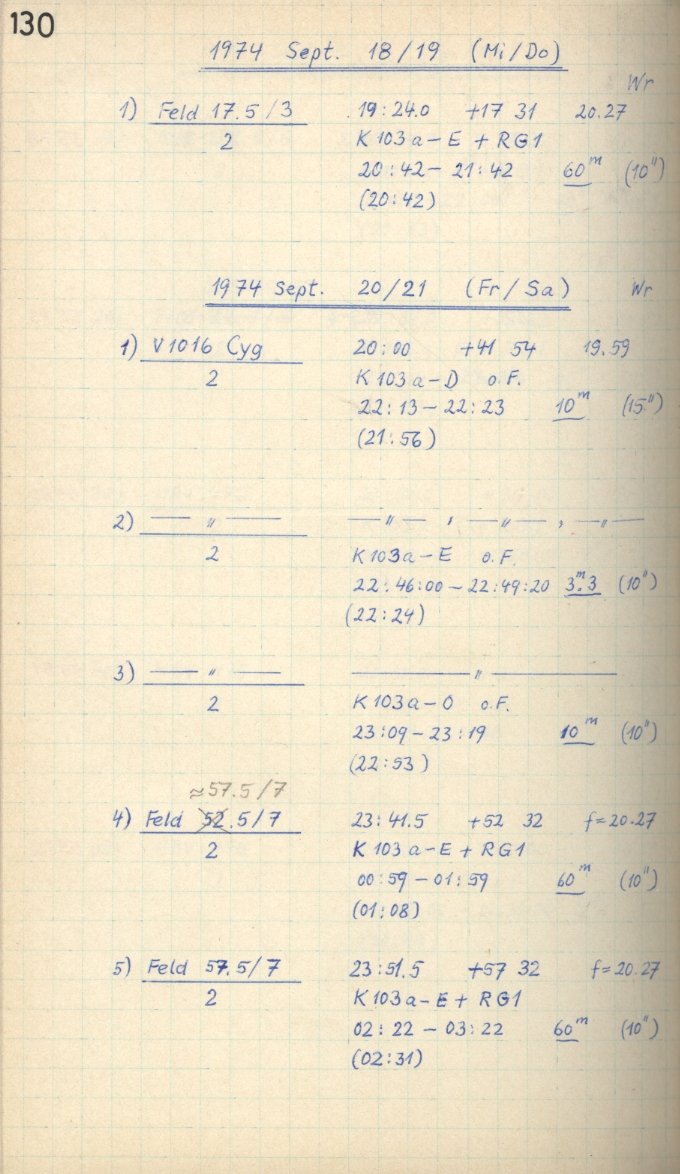 130
1974 Sept. 18/19 (Mi/Do)
Wr
1) Feld 17.5/3 19:24.0 +17 31 20.27
2 K 103a-E + RG1
20:42 - 21:42 60m (10")
(20:42)
1974 Sept. 20/21 (Fr/Sa) Wr
1) V1016 Cyg 20:00 +41 54 19.59
2 K 103a-D o.F.
22:13 - 22:23 10m (15")
(21:56)
2) — " — — " — , — " — , — " —
2 K103a-E o.F.
22:46:00 - 22:49:20 3m.3 (10")
(22:24)
3) — " — — " —
2 K103a-O o.F.
23:09 - 23:19 10m (10")
(22:53)
≈57.5/7
4) Feld 52.5/7 23:41.5 +52 32 f=20.27
2 K 103a-E + RG1
00:59 - 01:59 60m (10")
(01:08)
5) Feld 57.5/7 23:51.5 +57 32 f=20.27
2 K103a-E + RG1
02:22 - 03:22 60m (10")
(02:31)